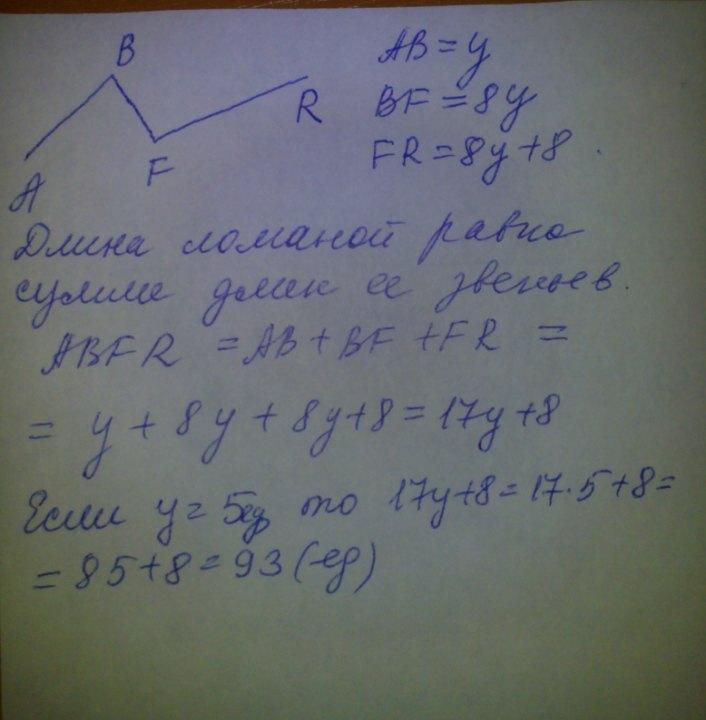 B
AB = y
R
BF = 8y
F
FR = 8y + 8.
A
Длина ломаной равна
сумме длин ее звеньев.
ABFR = AB + BF + FR =
= y + 8y + 8y + 8 = 17y + 8
Если y = 5ед то 17y + 8 = 17·5 + 8 =
= 85 + 8 = 93 (ед)